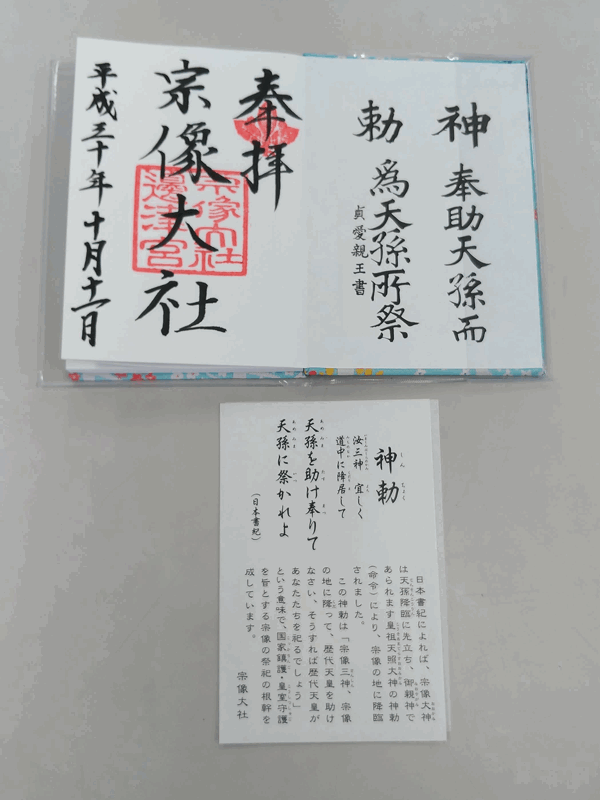 神 奉助天孫而
勅 爲天孫所祭
貞愛親王書
奉拝
宗像大社
宗像大社
邊津宮
平成三十年十月十一日
神勅
汝三神 宜しく
道中に降居して
天孫を助け奉りて
天孫に祭かれよ
(日本書紀)
日本書紀によれば、宗像大神
は天孫降臨に先立ち、御親神で
あられます皇祖天照大神の神勅
(命令)により、宗像の地に降臨
されました。
この神勅は「宗像三神、宗像
の地に降って、歴代天皇を助け
なさい、そうすれば歴代天皇が
あなたたちを祀るでしょう」
という意味で、国家鎮護・皇室守護
を旨とする宗像の祭祀の根幹を
成しています。
宗像大社